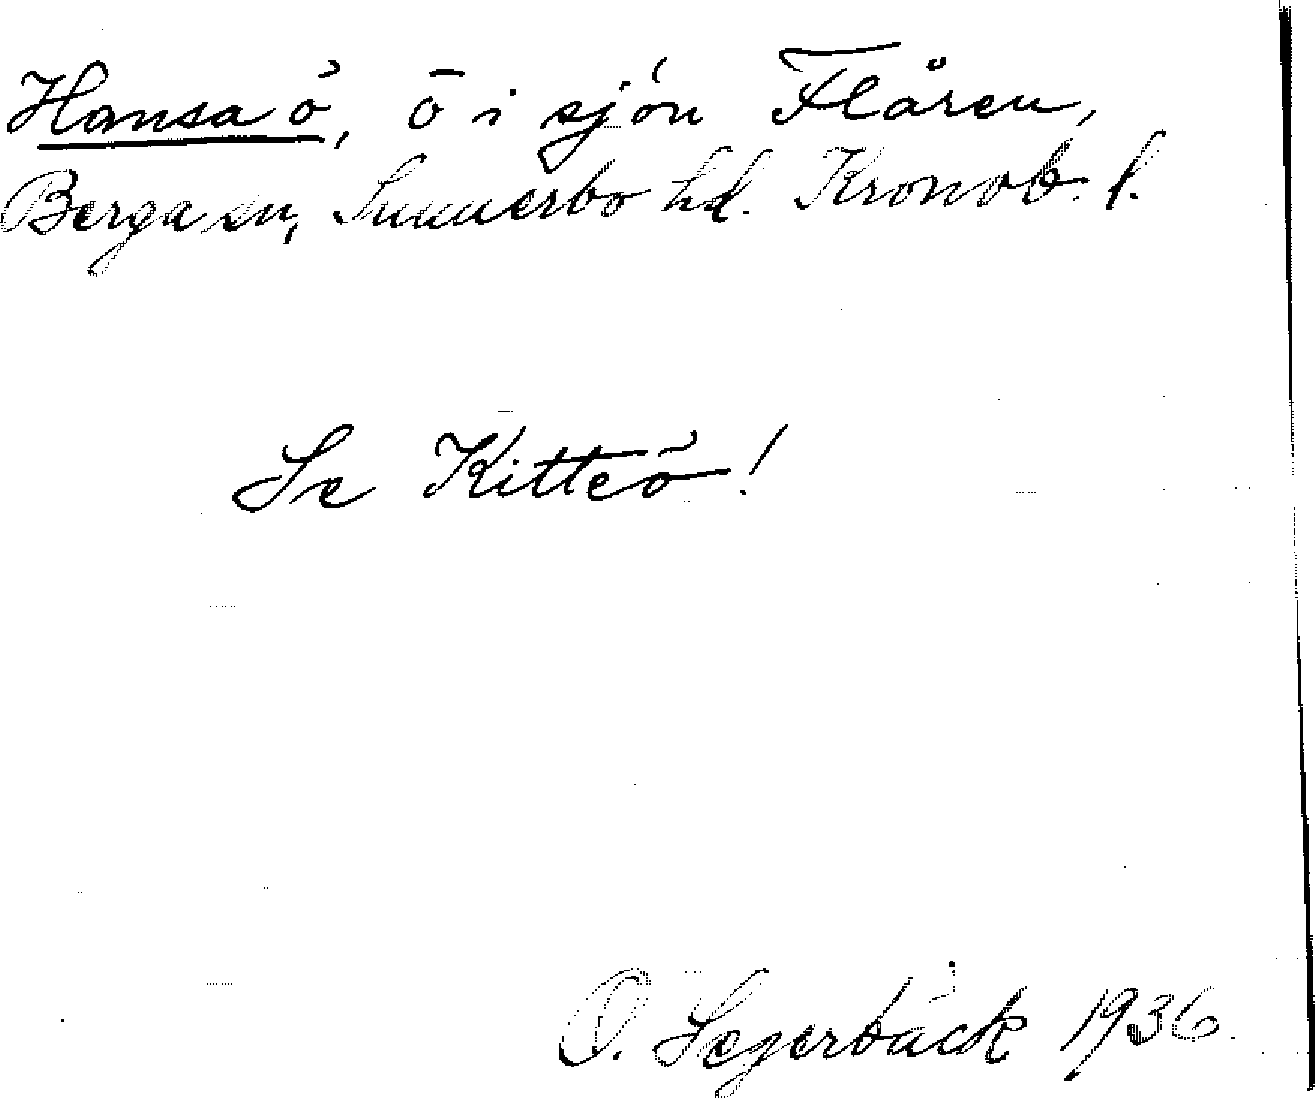 Hansaö, ö i sjön Flåren,
Berga sn, Sunnerbo hd. Kronob. l.
Se Kitteö!
O. Segerbäck 1936.